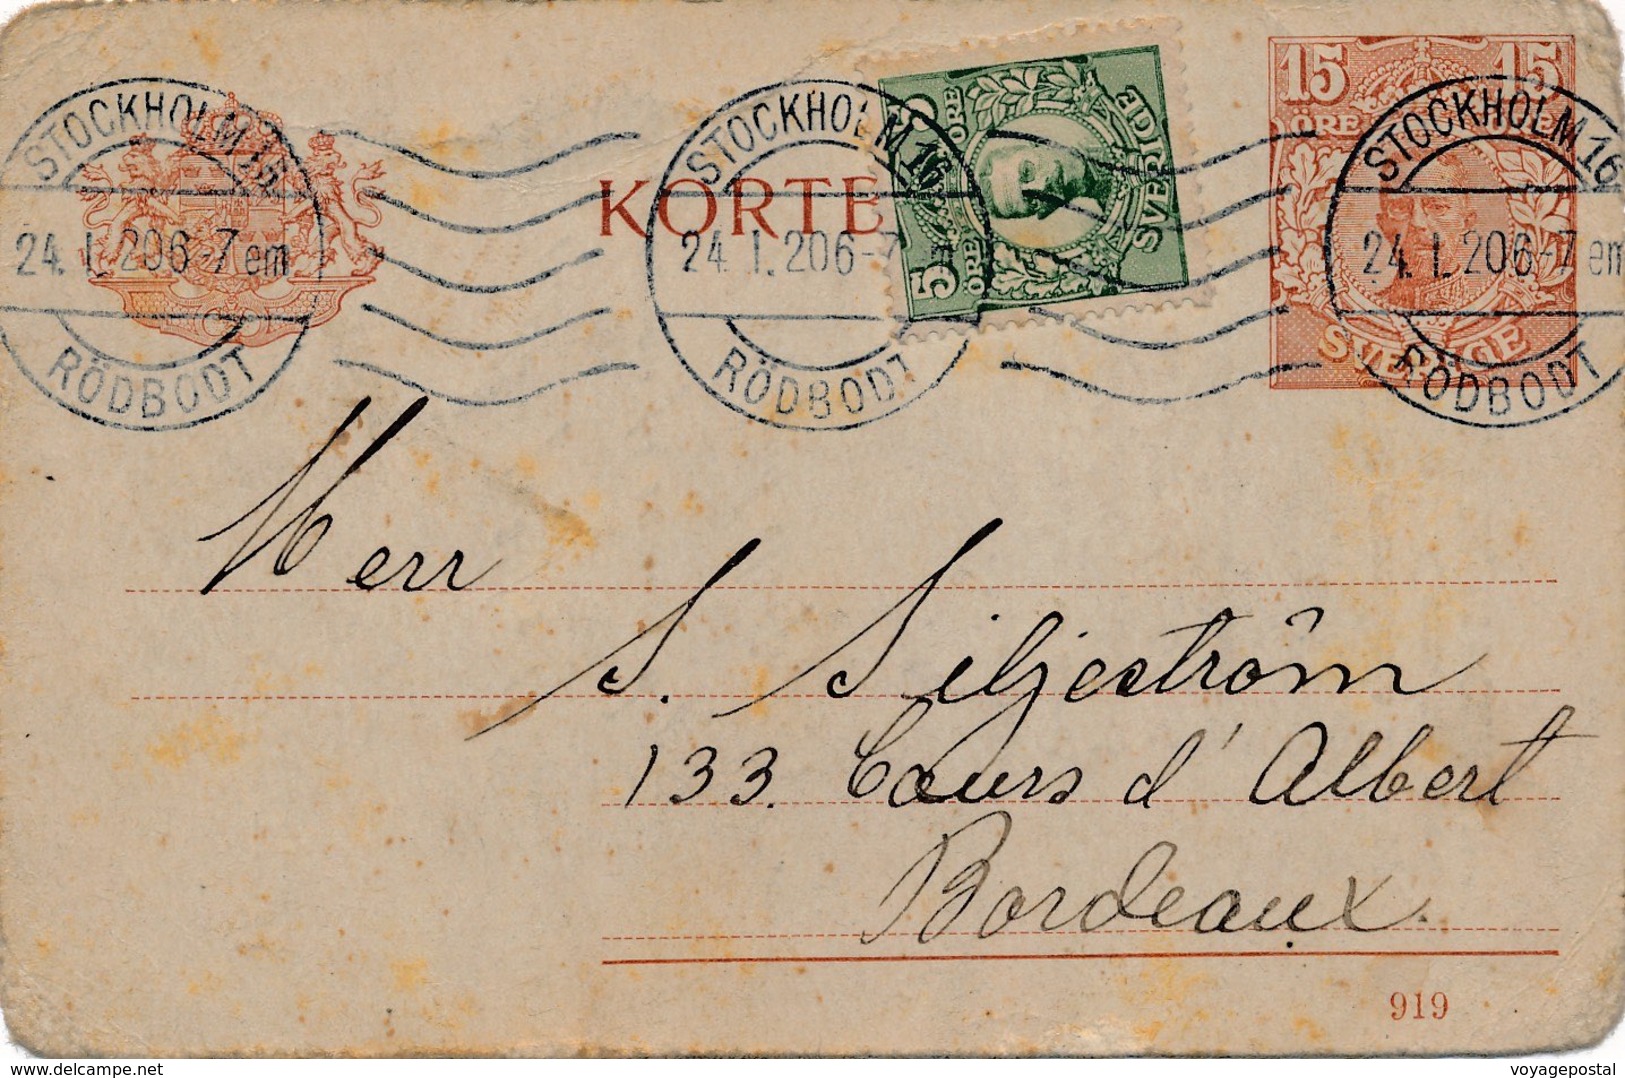 STOCKHOLM 16
24. 1. 20 6-7 em
RÖDBODT
KORT
STOCKHOLM 16
24. 1. 20 6-7 em
RÖDBODT
5 5
ÖRE ÖRE
SVERIGE
15 15
ÖRE ÖRE
SVERIGE
STOCKHOLM 16
24. 1. 20 6-7 em
RÖDBODT
Herr
S. Siljeström
133. Cours d'Albert
Bordeaux.
919
www.delcampe.net
voyagepostal